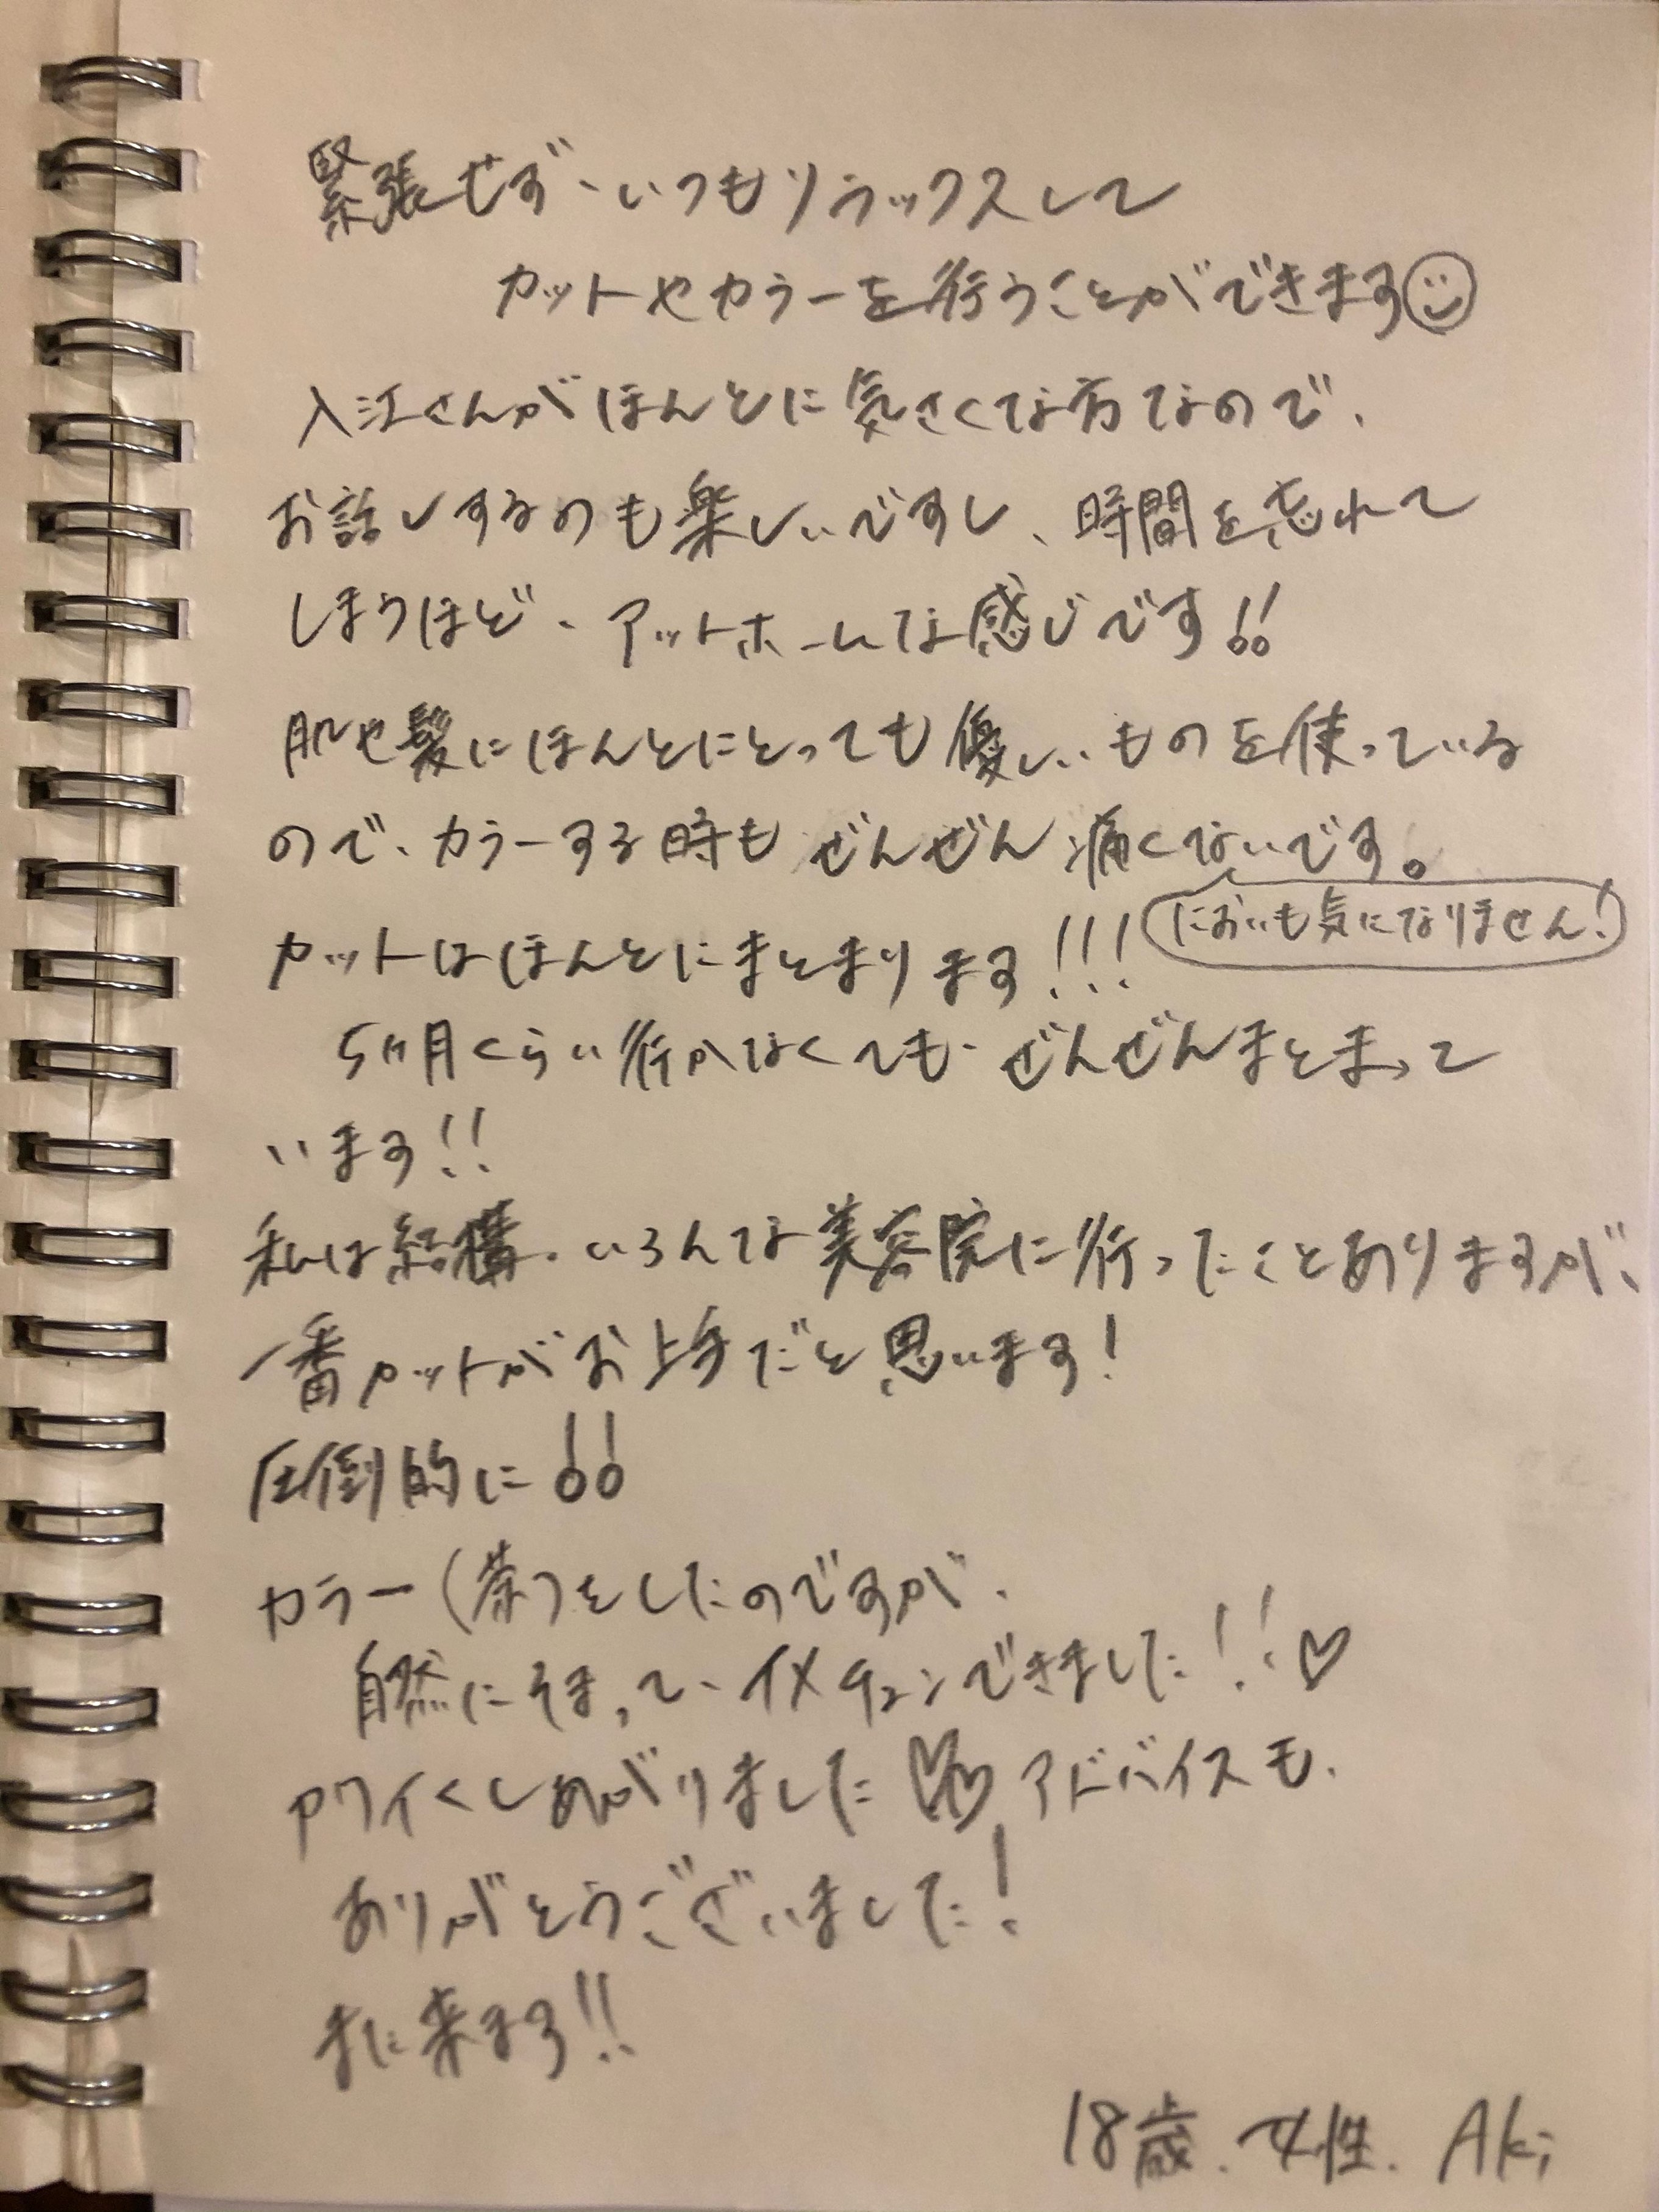 緊張せず、いつもリラックスして
カットやカラーを行うことができます
入江さんがほんとに気さくな方なので、
お話しするのも楽しいですし、時間を忘れて
しまうほど、アットホームな感じです!!
肌や髪にほんとにとっても優しいものを使っている
ので、カラーする時もぜんぜん痛くないです。
においも気になりません!
カットはほんとにまとまります!!!
5ヶ月くらい行かなくても、ぜんぜんまとまって
います!!
私は結構、いろんな美容院に行ったことありますが、
一番カットがお上手だと思います!
圧倒的に!!
カラー(茶)をしたのですが、
自然にそまって、イメチェンできました!!♡
カワイくしあがりました♡♡アドバイスも、
ありがとうございました!
また来ます!!
18歳.女性.Aki